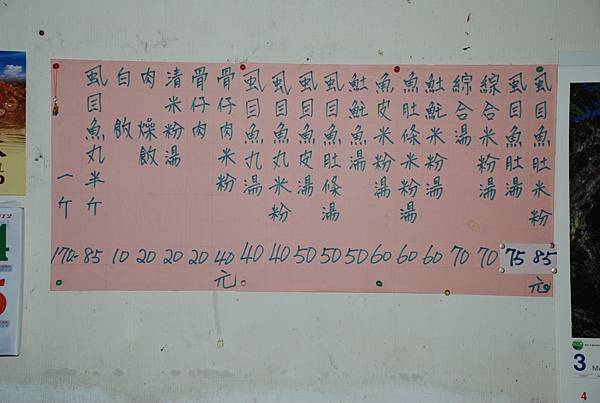 虱目魚肚米粉 85元
虱目魚肚湯 75
綜合米粉湯 70
綜合湯 70
魠米粉湯 60
魚肚條米粉湯 60
魚皮米粉湯 60
魠湯 50
虱目魚肚條湯 50
虱目魚皮湯 50
虱目魚丸米粉 40
虱目魚丸湯 40
骨仔肉米粉 40元
骨仔肉 20
清米粉湯 20
肉燥飯 20
白飯 10
虱目魚丸半斤 85
一斤 170-
3
4